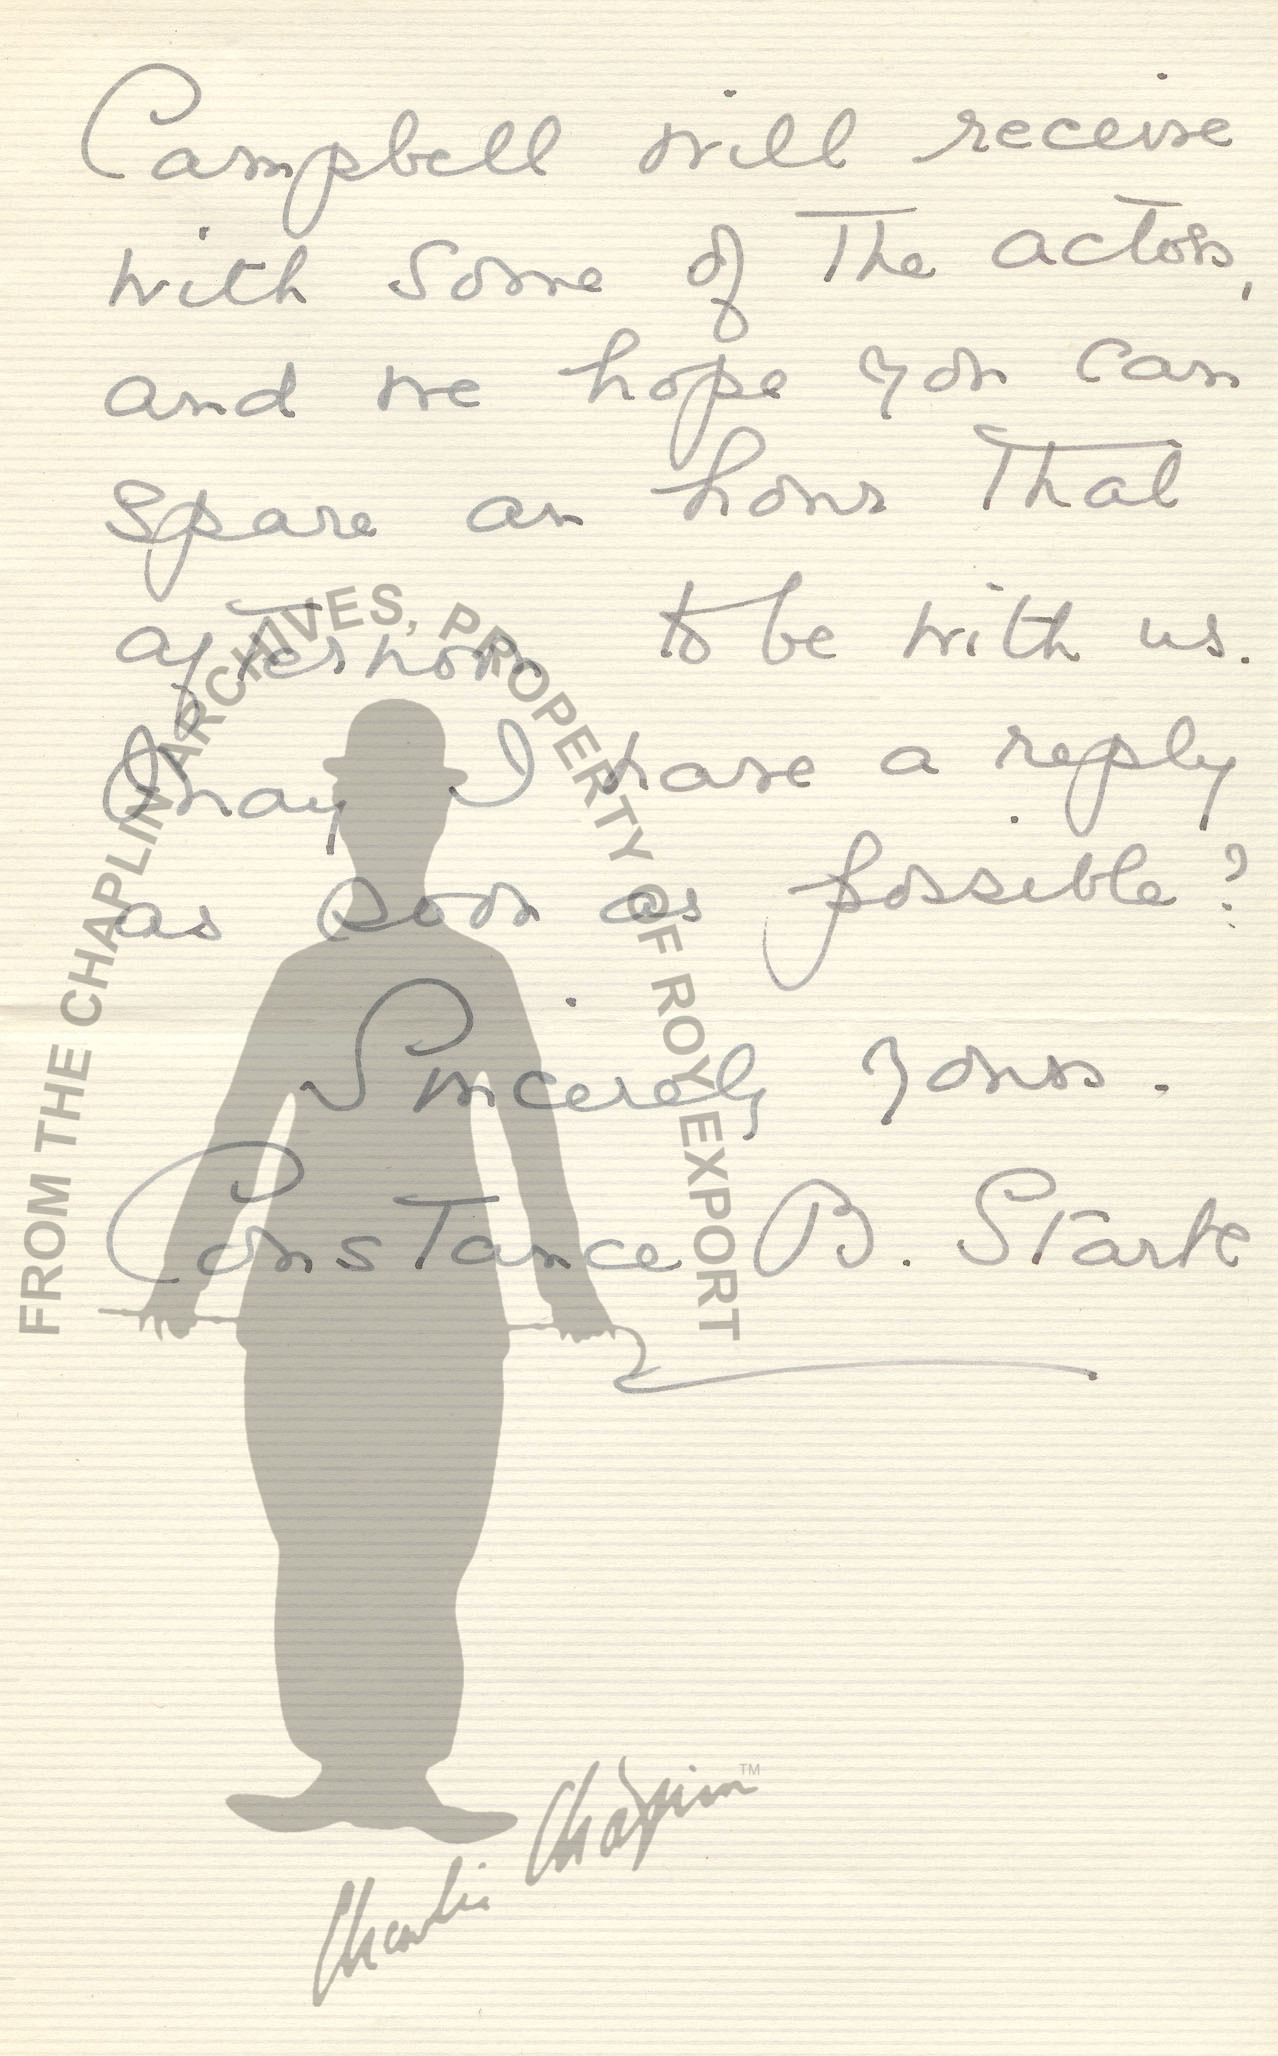 Campbell will receive
with some of The actors,
and we hope you can
spare an hour That
afternoon to be with us.
May I have a reply
as soon as possible?
Sincerely yours.
Constance B. Starke
FROM THE CHAPLIN ARCHIVES, PROPERTY OF ROY EXPORT
Charlie Chaplin TM